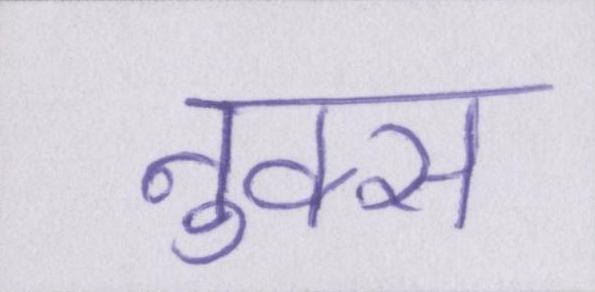 नुक्स